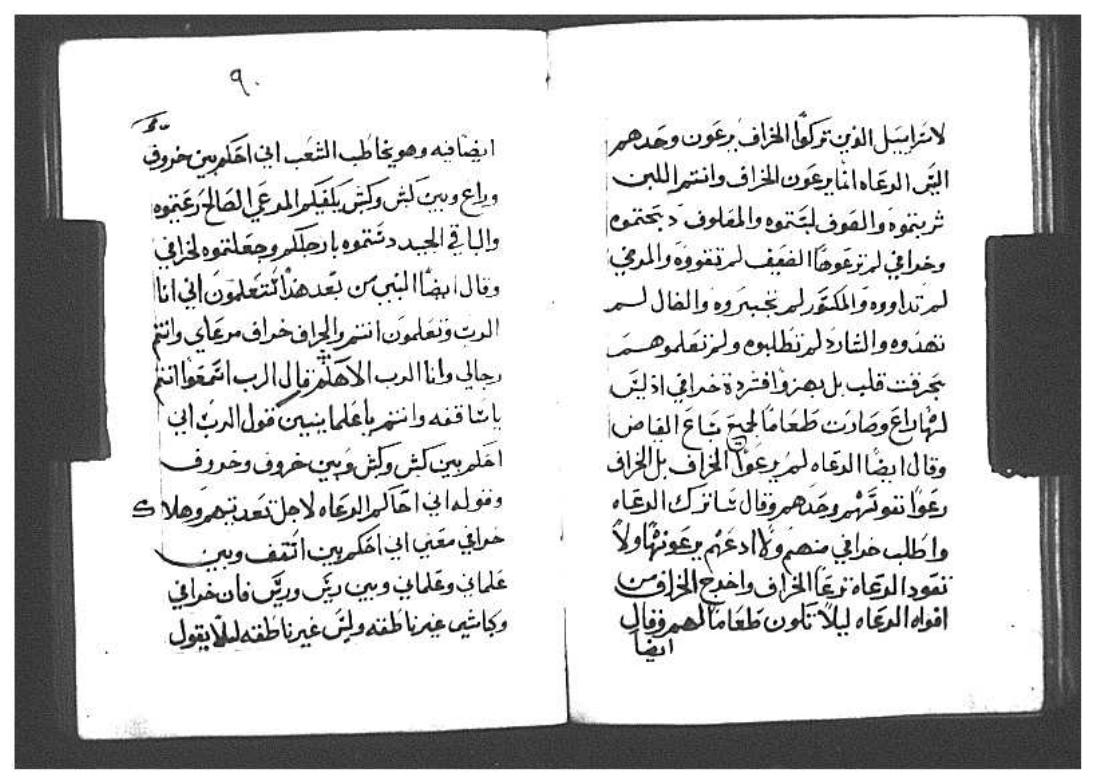 لاسراييل الذين تركوا الخراف يرعون وحدهم
اليس الرعاه انما يرعون الخراف وانتم اللبن
شربتموه والصوف لبستموه والمعلوف دبحتموه
وخرافي لم ترعوها الضعيف لم تقووه والمرضي
لم تداووه والمكسور لم تجبروه والضال لم
تهدوه والشارد لم تطلبوه ولم تعلموهم
بحرقت قلب بل بهزوا افتردة خرافي اذ ليس
لها راع وصارت طعاما لجميع سباع القاص
وقال ايضا الرعاه لم يرعوا الخراف بل الخراف
رعوا نفوسهم وحدهم وقال ساترك الرعاه
واطلب خرافي منهم ولا ادعهم يرعونها ولا
تعود الرعاه ترعا الخراف واخرج الخراف من
افواه الرعاه ليلا تكون طعاما لهم وقال
ايضا
٩٠
ايضا فيه وهو يخاطب الشعب اني احكم بين خروف
وراع وبين كبش وكبش يكفيكم المرعي الصالح رعيتموه
والباقي الجيد دستموه بارجلكم وجعلتموه لخرافي
وقال ايضا النبي من بعد هذا ستعلمون اني انا
الرب وتعلمون انتم والخراف خراف مرعاي وانتم
رجالي وانا الرب الاهكم قال الرب اسمعوا انتم
يا ساقفه وانتم يا علمانيين قول الرب اني
احكم بين كبش وكبش وبين خروف وخروف
وقوله اني احاكم الرعاه لاجل تعديتهم وهلاك
خرافي معني اني احكم بين اسقف وبين
علماني وعلماني وبين ريس وريس فان خرافي
وكباشي غير ناطقه وليس غير ناطقه ليلا يقول